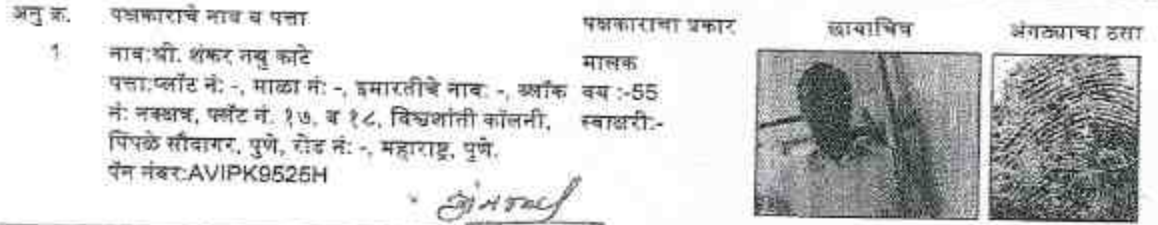 अनु क्र. पक्षकाराचे नाव व पत्ता पक्षकाराचा प्रकार छायाचित्र अंगठ्याचा ठसा
1 नाव:श्री. शंकर नथु काटे मालक
पत्ता:प्लॉट नं: -, माळा नं: -, इमारतीचे नाव: -, ब्लॉक वय :-55
नं: नक्षत्र, प्लॅट नं. १७, व १८, विश्वशांती कॉलनी, स्वाक्षरी:-
पिंपळे सौदागर, पुणे, रोड नं: -, महाराष्ट्र, पुणे.
पॅन नंबर:AVIPK9525H